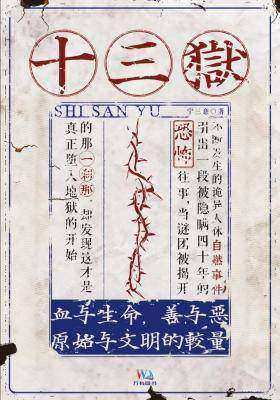 十三獄
SHI SAN YU
宁三意◎著
恐怖
不断发生的诡异人体自燃事件
引出一段被隐瞒四十年的
往事,当谜团被揭开
的那一刹那,却发现这才是
真正堕入地狱的开始
血与生命,善与惡
原始与文明的較量
万有图书